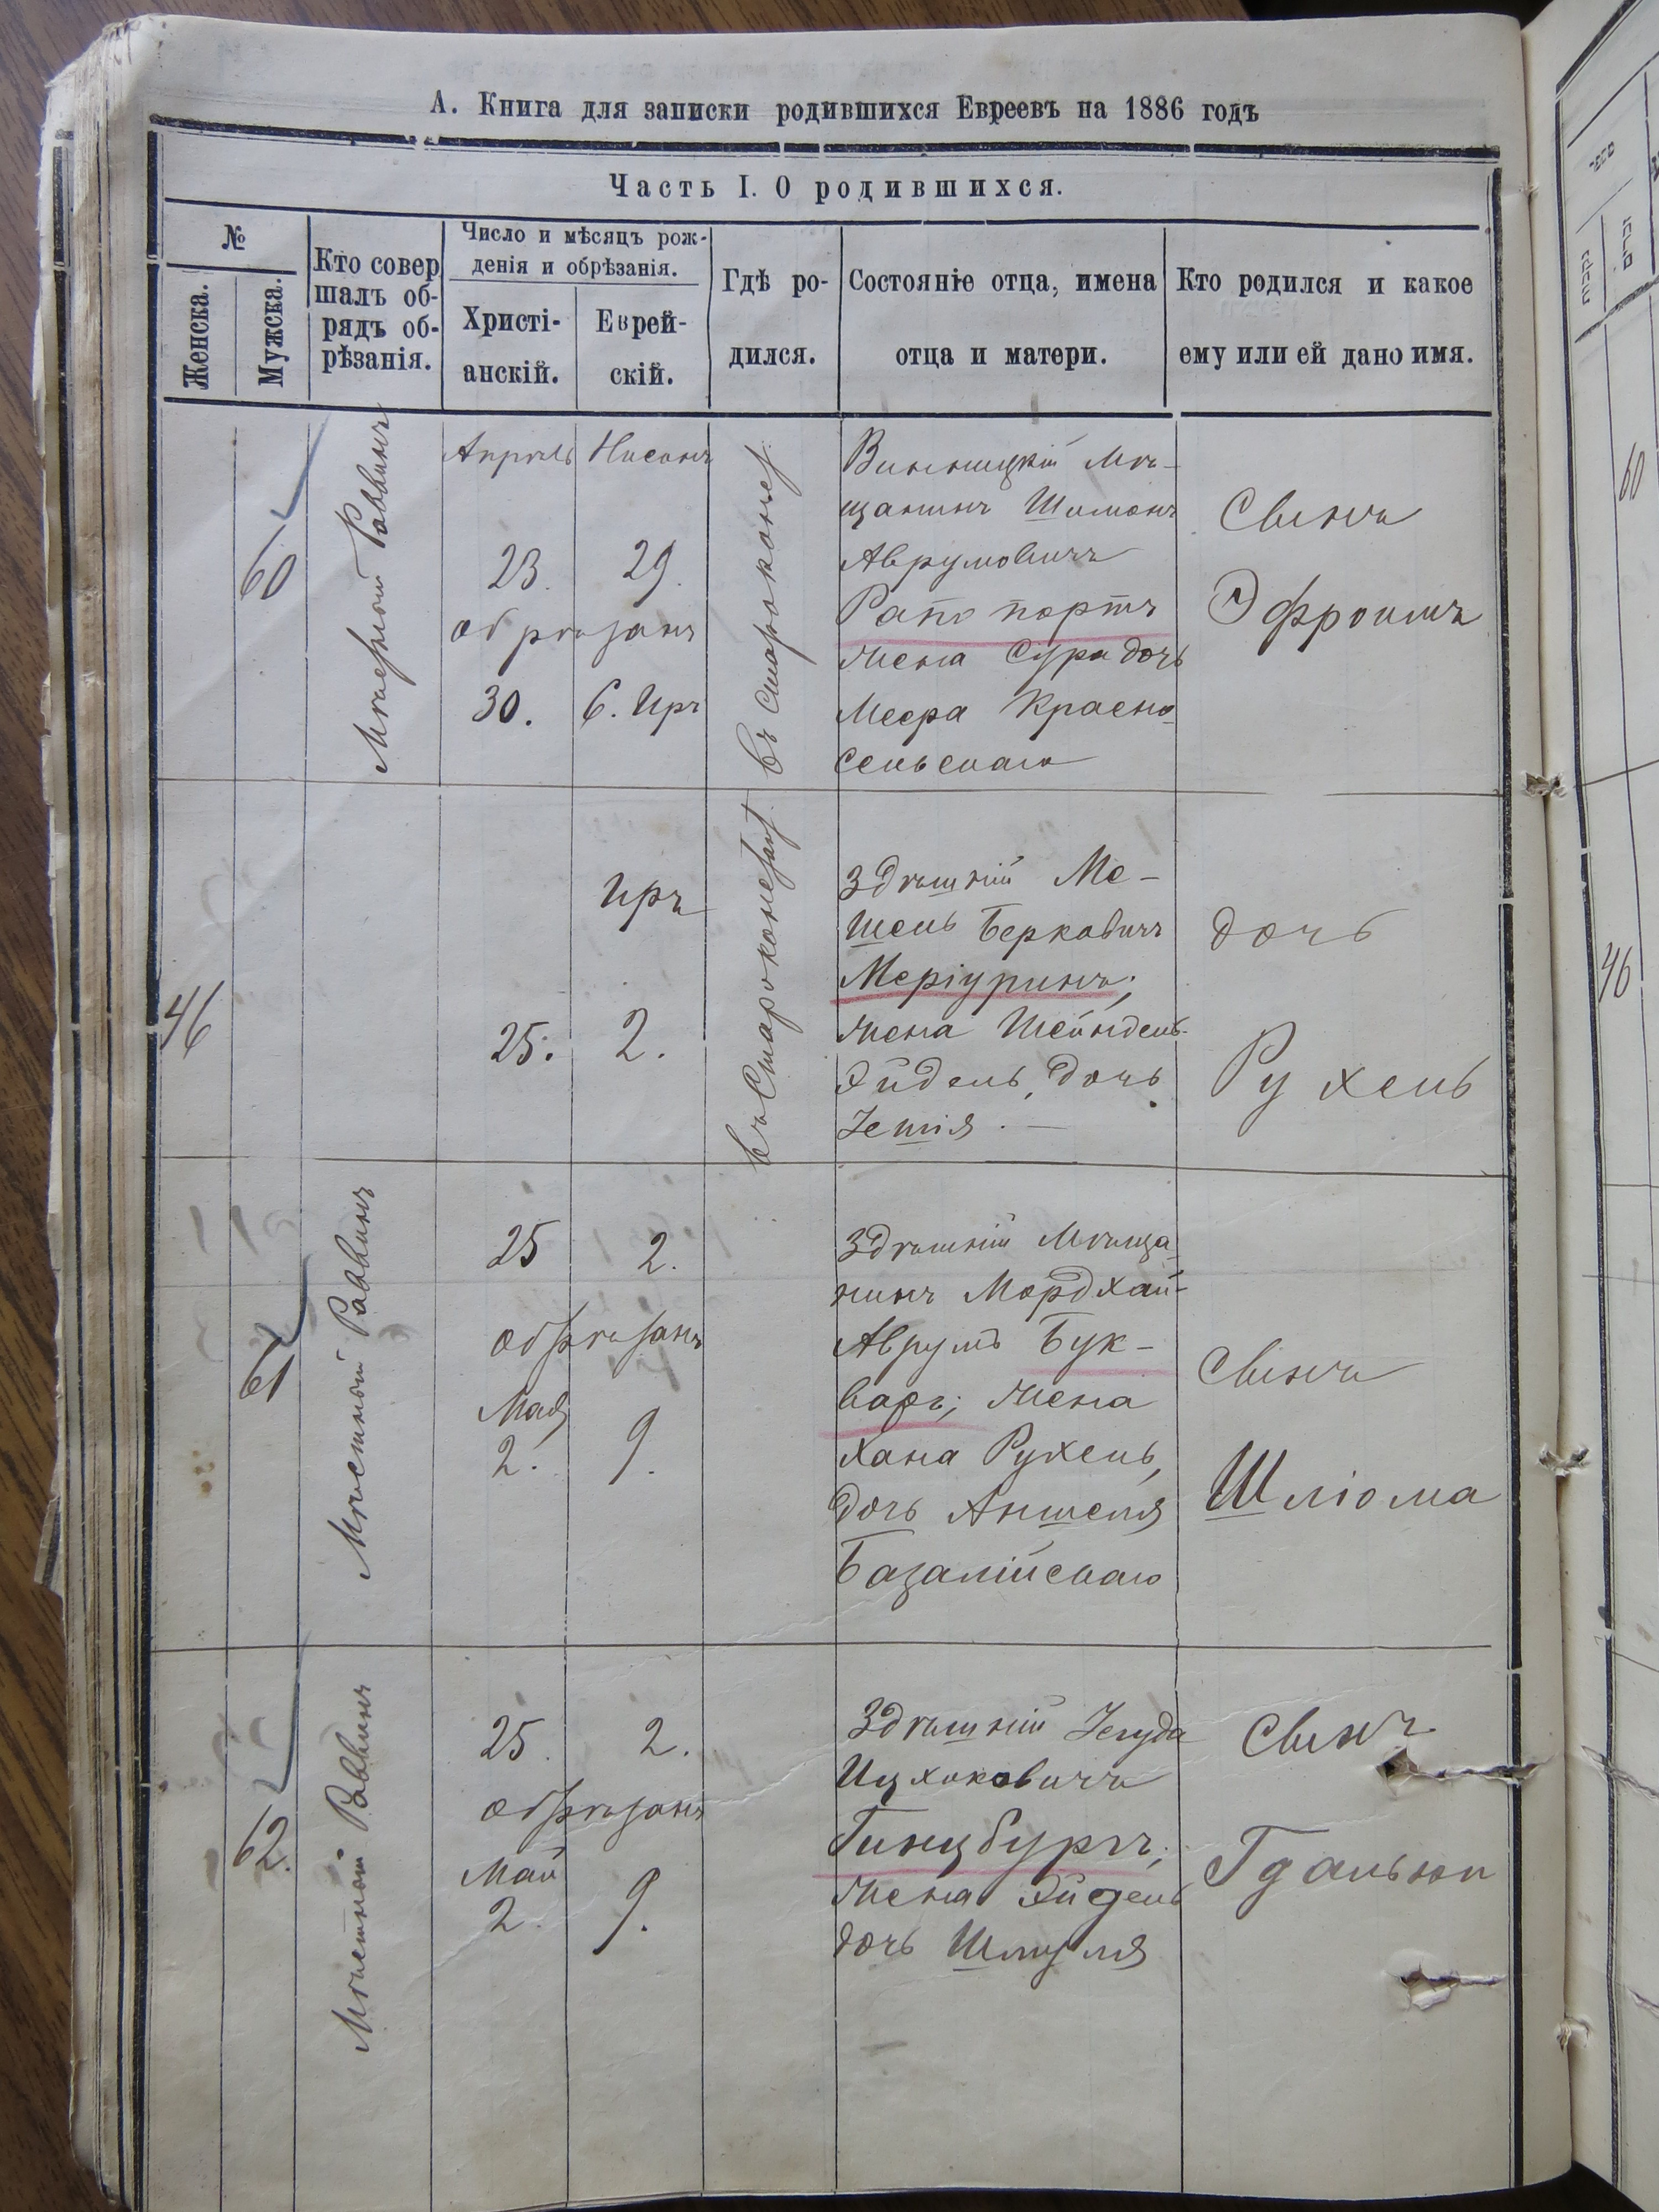 А. Книга для записки родившихся Евреевъ на 1886 годъ
Часть I. О родившихся.
№
Женска.
Мужска.
Кто совер
шалъ об-
рядъ об-
рѣзанія.
Число и мѣсяцъ рож-
денія и обрѣзанія.
Христі-
анскій.
Еврей-
скій.
Гдѣ ро-
дился.
Состояніе отца, имена
отца и матери.
Кто родился и какое
ему или ей дано имя.
60
Мѣстный Раввинъ
Апрѣль Нисонъ
23. 29.
обрѣзанъ
30. 6. Иръ
въ Староконст
Винницкій Мѣ-
щанинъ Шимонъ
Аврумовичъ
Рапопортъ
жена Сура дочь
Меера Красно
сельскаго
Сынъ
Эфроимъ
60
46
Иръ
25. 2.
въ Староконст
Здѣшній Ме-
шель Берковичъ
жена Шейндель-
Эйдель, дочь
дочь
Рухель
46
61
Мѣстный Раввинъ
25 2.
обрѣзанъ
Май
2. 9.
Здѣшній Мѣща
нинъ Мордхай-
Аврумъ Бук-
варъ; жена
Хана Рухель,
дочь Аншеля
Базалійскаго
Сынъ
Шліома
62.
Мѣстный Раввинъ
25. 2.
обрѣзанъ
Май
2. 9.
Здѣшній Іегуда
Ицхоковичъ
Гинцбургъ;
жена Эйдель
дочь Шмуля
Сынъ
Гдальюи